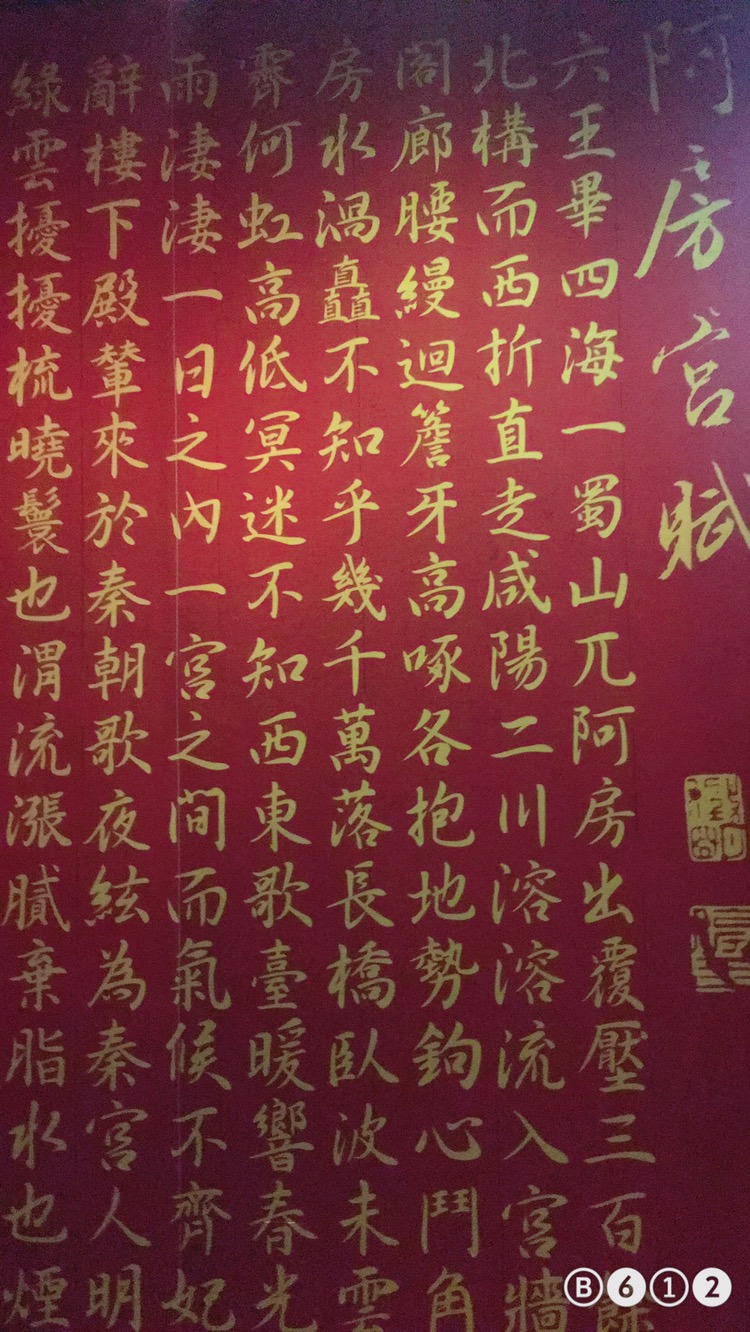 阿房宮賦
六王畢四海一蜀山兀阿房出覆壓三百餘
北構而西折直走咸陽二川溶溶流入宮牆
閣廊腰縵迴簷牙高啄各抱地勢鉤心鬥角
房水渦矗不知乎幾千萬落長橋臥波未雲
霽何虹高低冥迷不知西東歌臺暖響春光
雨淒淒一日之內一宮之間而氣候不齊妃
辭樓下殿輦來於秦朝歌夜絃為秦宮人明
綠雲擾擾梳曉鬟也渭流漲膩棄脂水也煙
B612